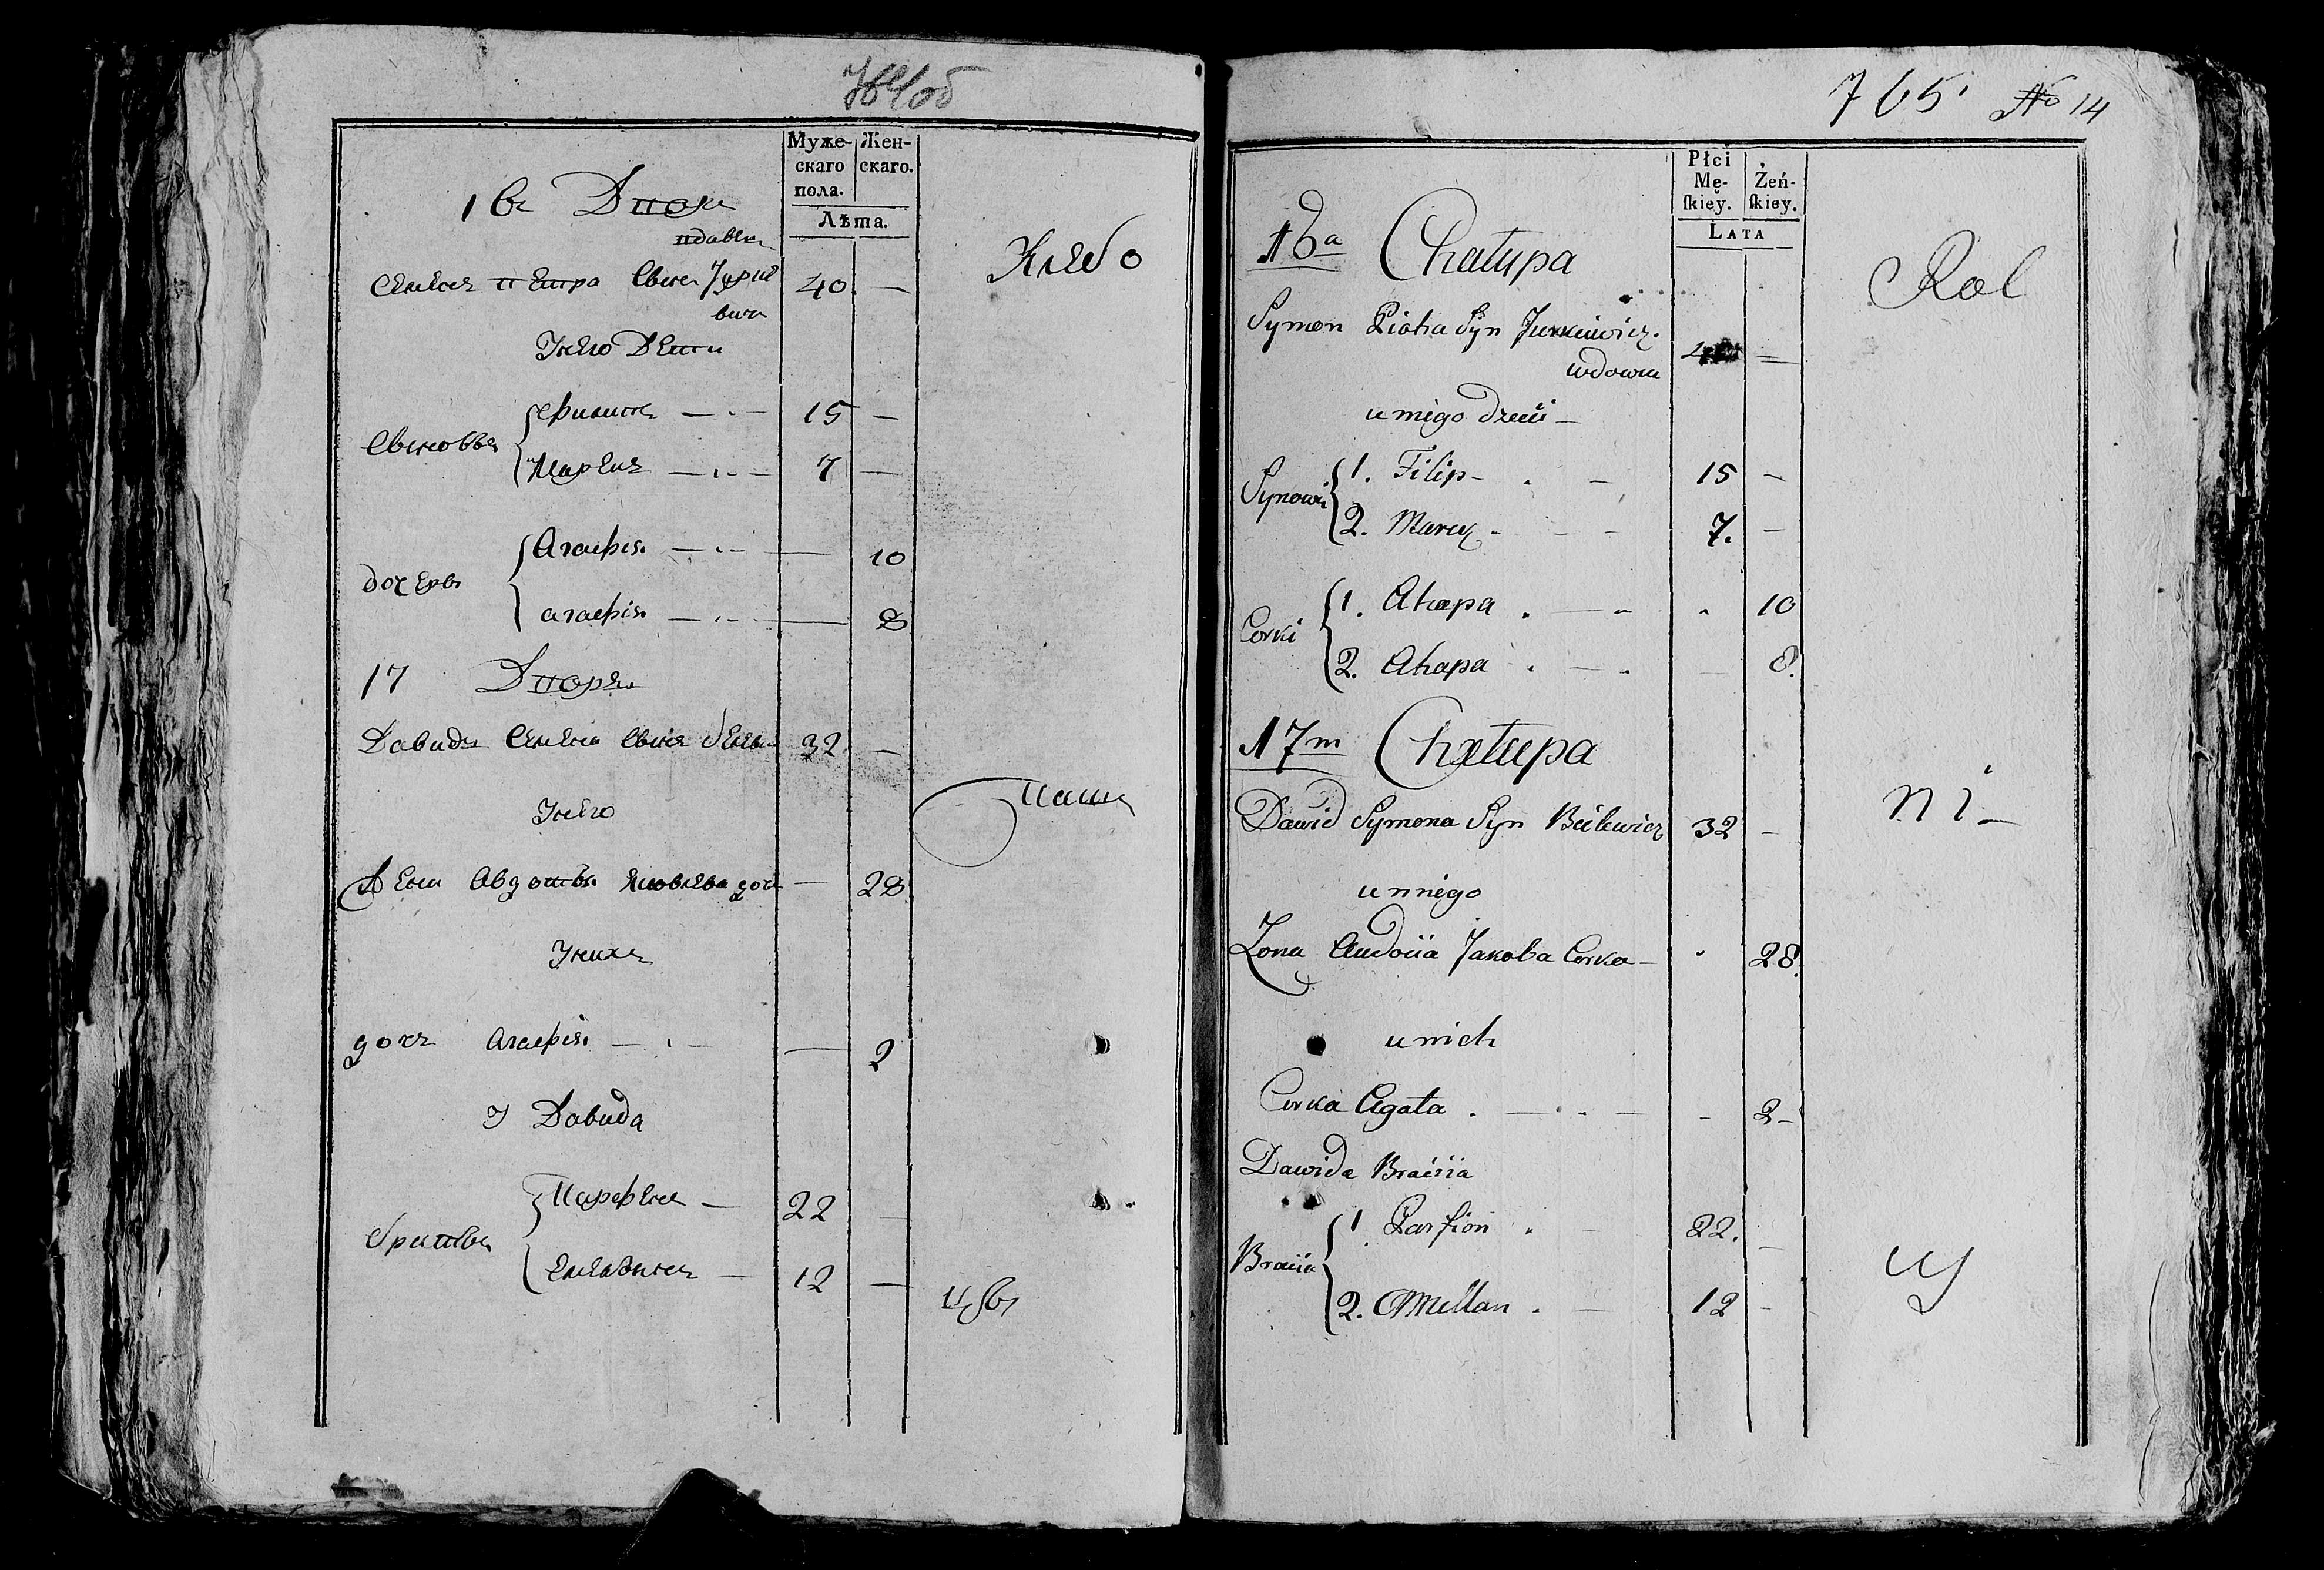 764об
Муже- Жен-
скаго скаго.
пола.
Лѣта.
16 Дворъ
вдавец
Семенъ Петра Сынъ Юрке
вичъ 40 —
Хлѣбо
У него Дети
Сыновья
Филипъ — 15 —
Марка — 7 —
дочерь
Агафія — — 10
агафія — — 8
17 Дворъ
Давидъ Семена Сынъ 32 —
У него
паш
Жена Авдотья Яковлева доч — 28
У нихъ
дочь Агафія — — 2
У Давида
братья
Парфенъ — 22 —
Емельянъ — 12 —
цы
765 № 14
Płci
Mę- Żeń-
skiey. skiey.
LATA
16a Chałupa
Rol
Symon Piotra Syn Jurkiewicz.
wdowiec 40 —
u niego dzieci —
Synowi
1. Filip - 15 —
2. Marek - 7. —
Corki
1. Ahapa . — 10
2. Ahapa . — 8.
17m Chałupa
Dawid Symona Syn Beilewicz 32 —
ni —
u niego
Zona Audocia Jakoba Corka — 28.
u nich
Corka Agata . — 2 -
Dawida Bracia
Bracia
1. Parfion . 22. —
cy
2. Omellan . — 12 —